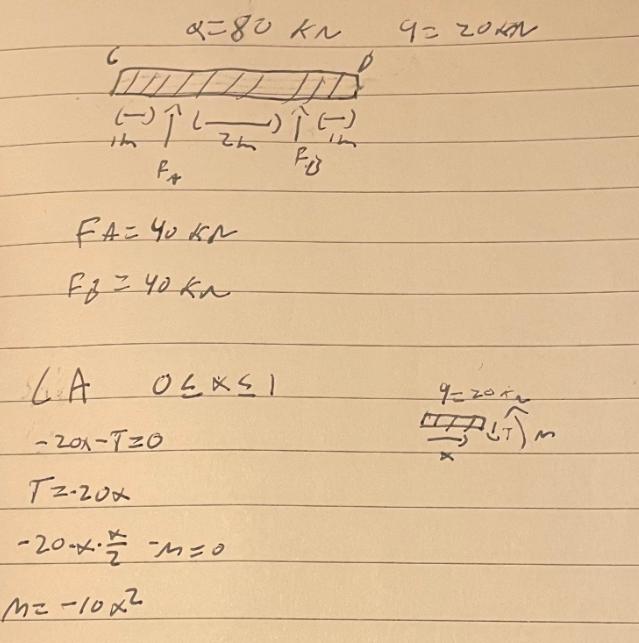 Q=80 KN q= 20KN
C D
(—) (—) (—)
1m 2m 1m
FA FB
FA=40 KN
FB=40 KN
CA 0≤x≤1
q=20KN
T M
x
-20x-T=0
T=-20x
-20·x·x/2 -M=0
M= -10x²